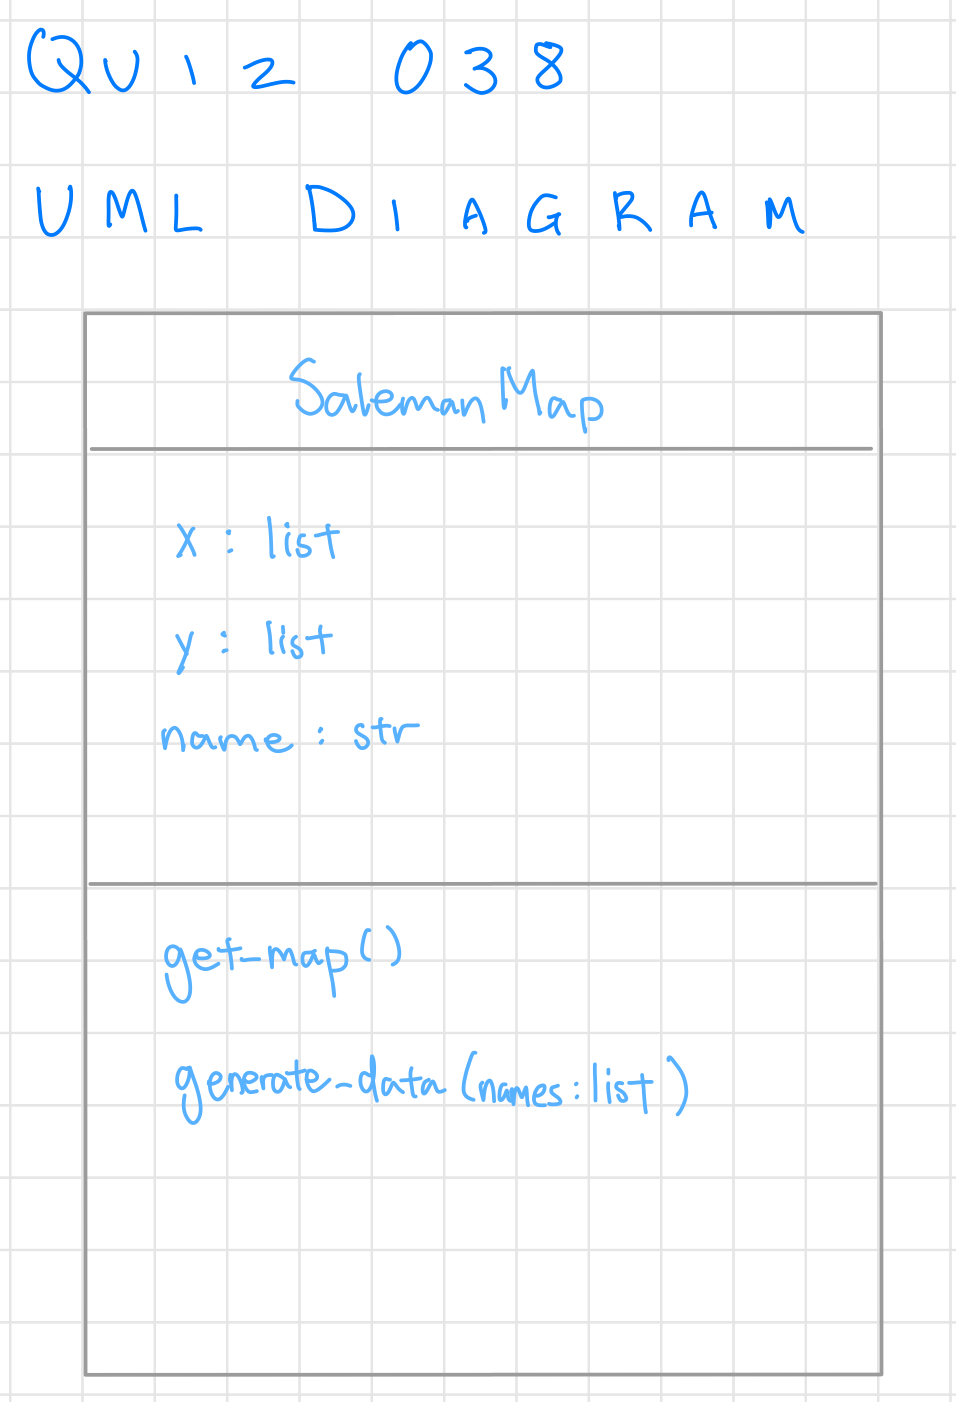 QUIZ 038
UML DIAGRAM
SalemanMap
x : list
y : list
name : str
get_map()
generate_data(names:list)